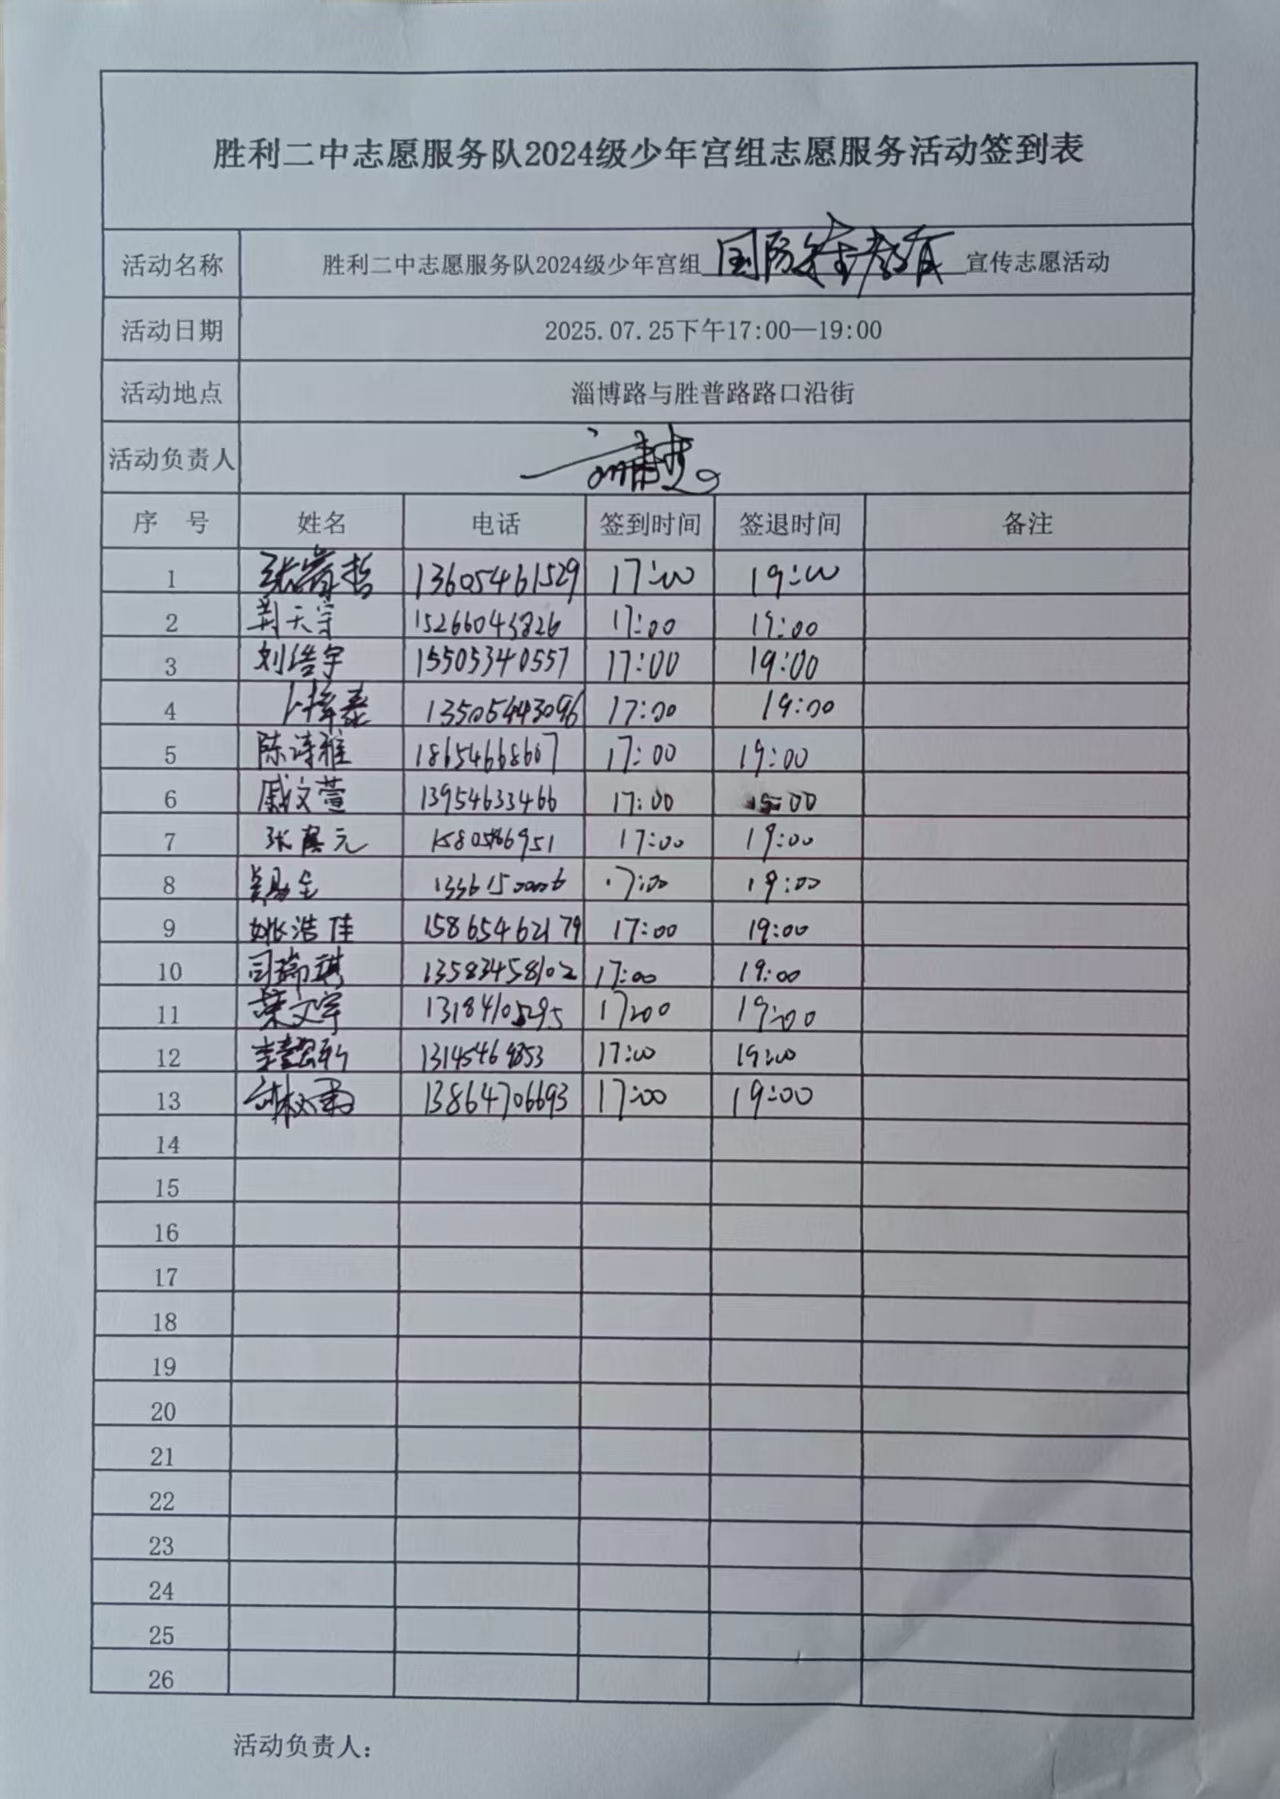 胜利二中志愿服务队2024级少年宫组志愿服务活动签到表
活动名称 胜利二中志愿服务队2024级少年宫组 国防 教育 宣传志愿活动
活动日期 2025.07.25下午17:00—19:00
活动地点 淄博路与胜普路路口沿街
活动负责人
序 号 姓名 电话 签到时间 签退时间 备注
1 张睿哲 13605461529 17:00 19:00
2 荆天宇 15266043826 17:00 19:00
3 刘浩宇 15505340557 17:00 19:00
4 13505443096 17:00 19:00
5 陈诗雅 18654668607 17:00 19:00
6 戚文萱 13954633466 17:00
7 张 元 17:00 19:00
8 17:00 19:00
9 姚浩佳 15865462179 17:00 19:00
10 司瑞琪 13583458102 17:00 19:00
11 荣文宇 17:00 19:00
12 17:00 19:00
13 13864706693 17:00 19:00
14
15
16
17
18
19
20
21
22
23
24
25
26
活动负责人：